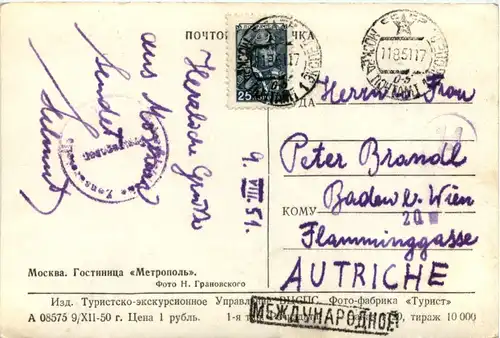 ПОЧТО
ЧКА
25
11851.17
Herzliche Grüße
aus Moskau
sendet
Helmut
9. VIII. 51.
УДА
Herrn Frau
Peter Brandl
КОМУ
Baden b. Wien
20
Flamminggasse
AUTRICHE
Москва. Гостиница «Метрополь».
Фото Н. Грановского
Изд. Туристско-экскурсионное Управле ВЦСПС. Фото-фабрика «Турист»
А 08575 9/XII-50 г. Цена 1 рубль. 1-я тираж 10 000
МЕЖДУНАРОДНОЕ